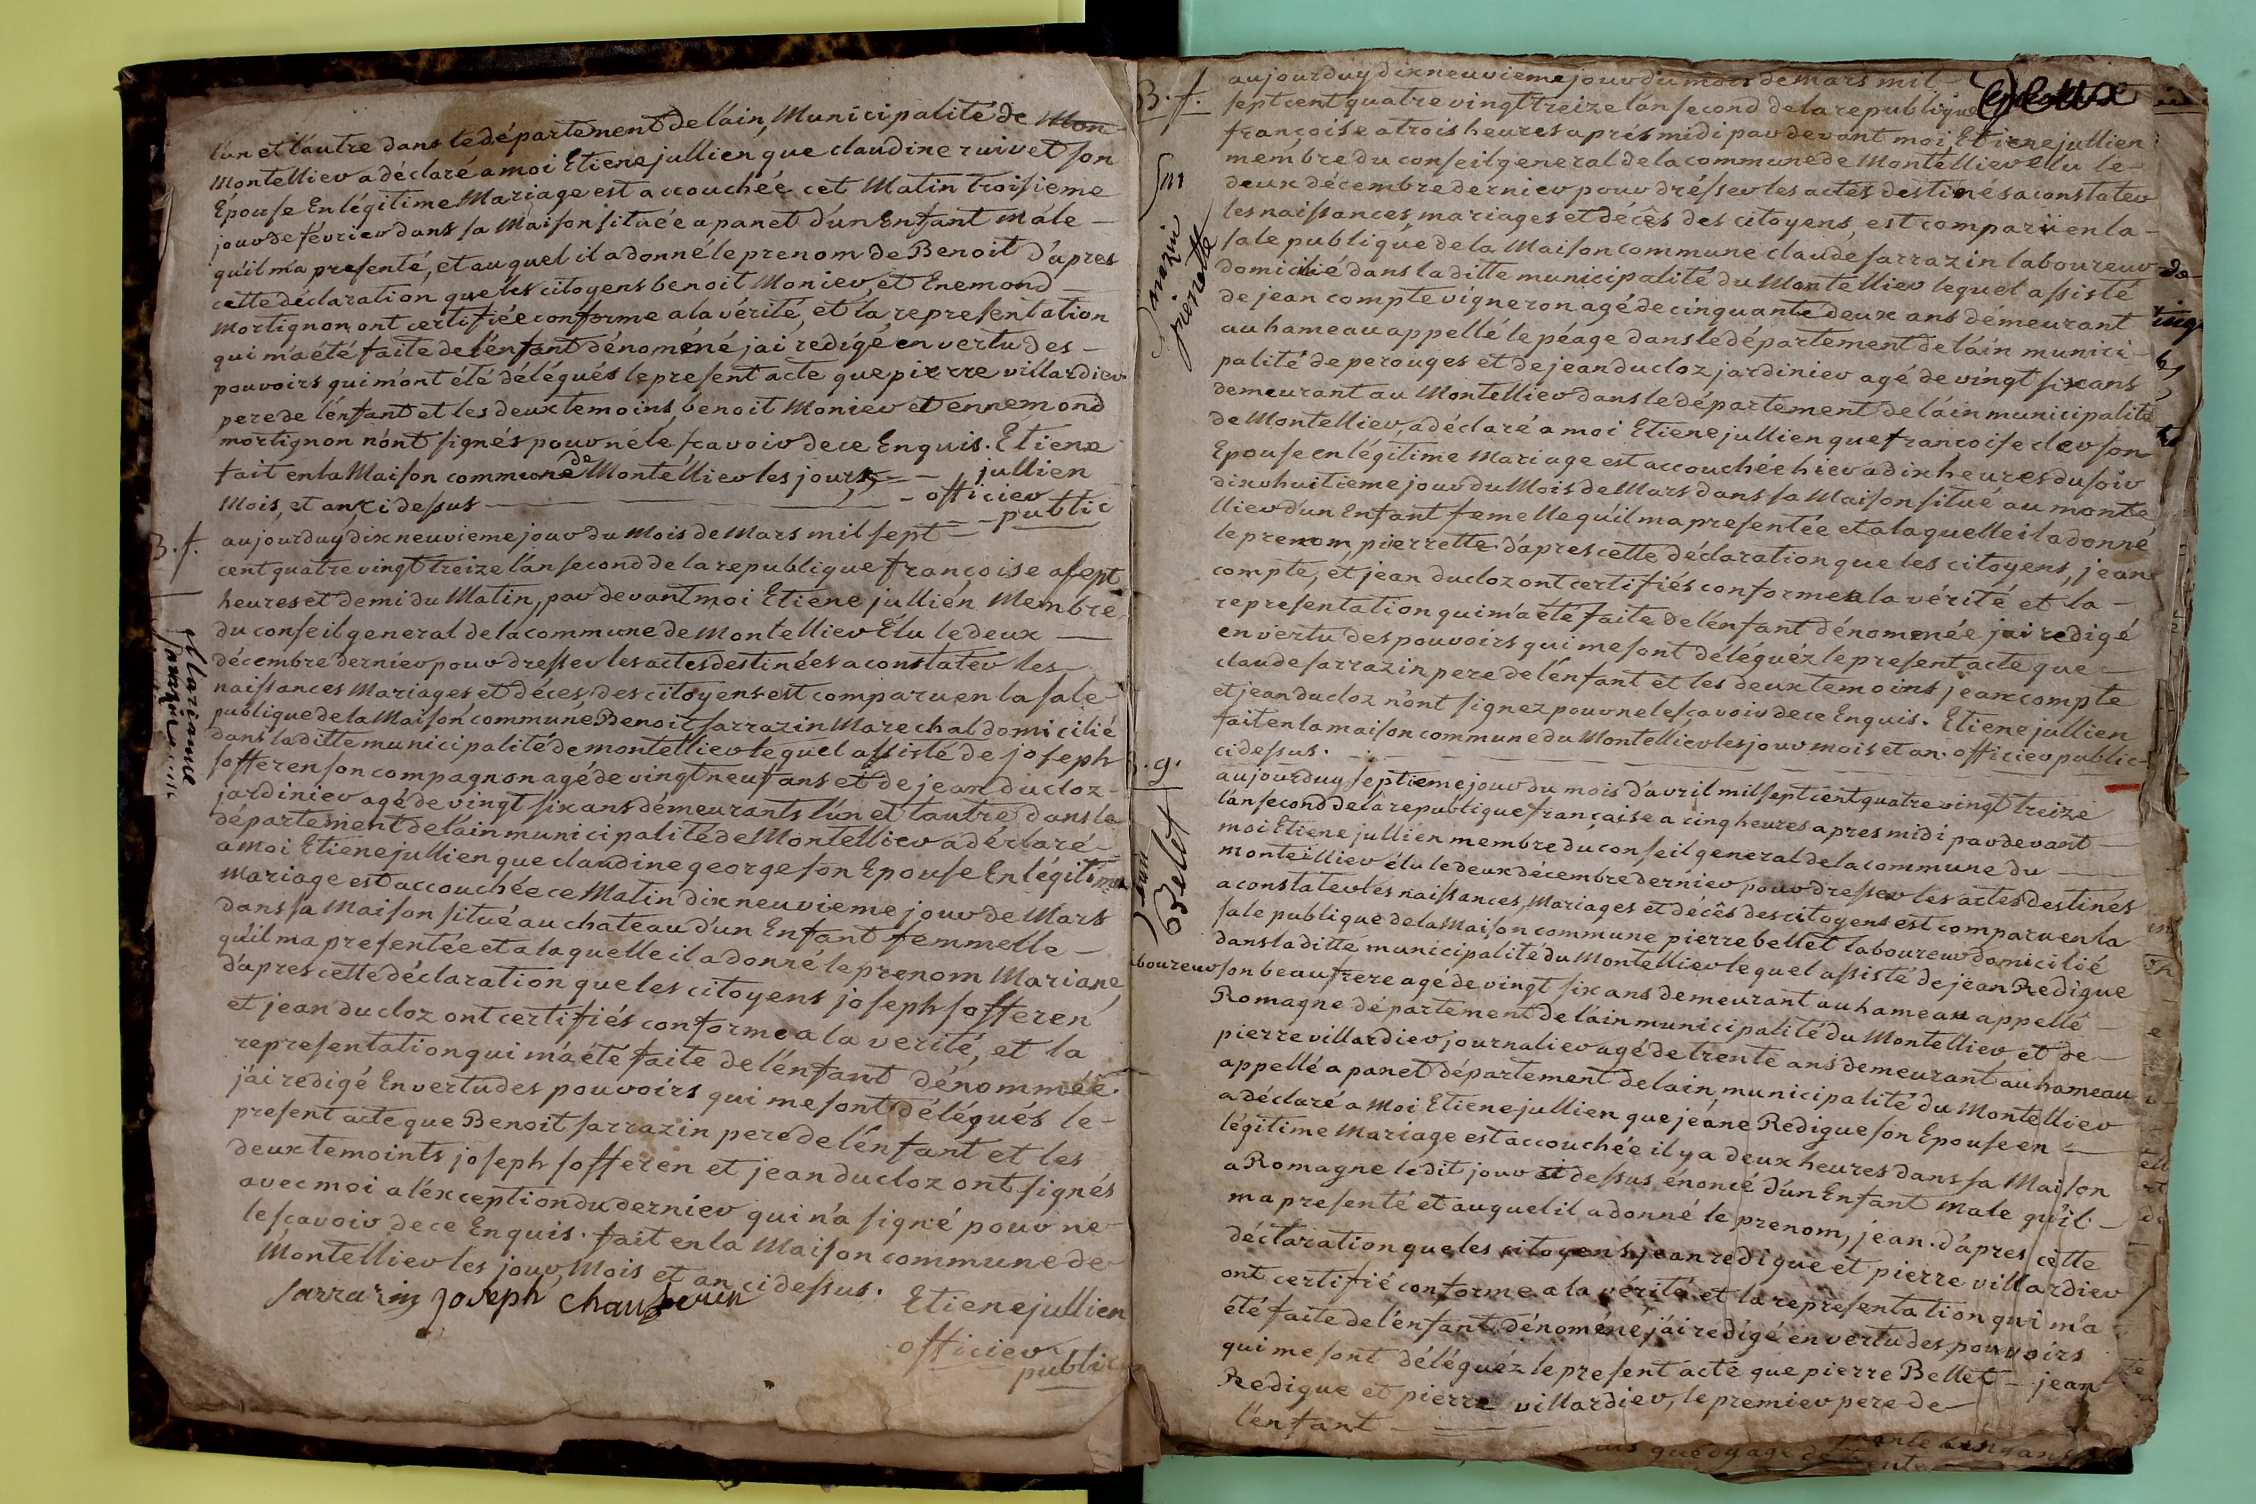 l'un et l'autre dans le département de l'ain, Municipalité de Mon
Montellier a déclaré a moi Etiene jullien que claudine ruivet son
Épouse En légitime Mariage est accouchée cet Matin troisieme
jour de février dans sa Maison située a panet d'un Enfant Mâle –
qu'il m'a presenté, et auquel il a donné le prenom de Benoit d'apres
cette déclaration que les citoyens benoit Monier, et Enemond –
Mortignon, ont certifiée conforme a la vérité, et la representation
qui m'a été faite de l'énfant dénoméné j'ai redigé, en vertu des –
pouvoirs qui m'ont été délégués le present acte que pierre villardier
pere de l'énfant et les deux temoins, benoit Monier et Ennemond
mortignon n'ont signés pour né lé sçavoir de ce Enquis. Etiene
fait en la Maison commune de Montéllier les jours, – jullien
Mois, et an, ci dessus – officier
public
B. f.
aujourduy dix neuvieme jour du Mois de Mars mil sept –
cent quatre vingt treize l'an second de la republique françoise a sept
heures et demi du Matin, par devant moi Etiene jullién Membre
du conseil general de la commune de Montellier Élu le deux –
décembre dernier pour dresser les actes destinées a constater les
Marianne
Sarrazin
naissances Mariages et décés, des citoyens est comparu en la sale
publique de la Maison commune, Benoit sarrazin Marechal domicilié
dans la ditte municipalité de montellier le quel assisté de joseph
sofferen son compagnon agé de vingt neuf ans et de jean ducloz –
jardinier agé de vingt six ans démeurants l'un et l'autre dans le
département de l'ain municipalité de Montellier a déclaré –
a moi Etiene jullien que claudine george son Epouse En légitime
Mariage est accouchée ce Matin dix neuvieme jour de Mars
dans sa Maison situé au chateau d'un Enfant femmelle –
qu'il m'a presentée et a la quelle il a donné le prenom Mariane,
d'apres cette déclaration que les citoyens joseph sofferen
et jean ducloz ont certifiés conforme a la verité, et la
representation qui m'a éte faite de l'énfant dénommée
j'ai redigé En vertu des pouvoirs qui me sont délégués le –
present acte que Benoit sarrazin pere de l'énfant et les
deux temoints joseph sofferen et jean ducloz ont signés
avec moi a l'éxception du dernier qui n'a signé pour ne
le sçavoir de ce Enquis. fait en la Maison commune de
Montellier les jour, Mois et an ci dessus. Etiene jullien
sarrazin joseph
officier
public
B. f.
aujourduy dix neuvieme jour du mois de mars mil –
sept cent quatre vingt treize l'an second de la republique
françoise a trois heures aprés midi par devant moi Etiene jullien
membre du conseil general de la commune de Montellier élu le –
deux décembre dernier pour drésser les actes destinés a constater
les naissances, mariages et décês des citoyens, est comparü en la –
Sarrazin
pierrette
sale publique de la Maison commune claude sarrazin laboureur
domicilié dans la ditte municipalité du Montellier lequel assisté
de jean compte vigneron agé de cinquante deux ans demeurant
au hameau appellé le péage dans le département de l'ain munici –
palité de perouges et de jean ducloz jardinier agé de vingt six ans
demeurant au Montellier dans le département de l'ain municipalité
de Montellier, a déclaré a moi Etiene jullien que francoise cler son
Epouse en légitime Mariage est accouchée hier a dix heures du soir
dix huitieme jour du Mois de Mars dans sa Maison situé au monte
llier d'un Enfant femelle qu'il ma presentée et a laquelle il a donné
le prenom, pierrette. d'apres cette déclaration que les citoyens, jean
compte, et jean ducloz ont certifiés conforme a la vérité et la –
representation qui m'a été faite de l'énfant dénomenée j'ai redigé
en vertu des pouvoirs qui me sont déléguéz le present acte que –
claude sarrazin pere de l'énfant et les deux temoins jean compte
et jean ducloz n'ont signez pour ne le sçavoir de ce Enquis. Etiene jullien
fait en la maison commune du Montellier les jour mois et an. officier public
ci dessus.
B. g.
aujourduy septieme jour du mois d'avril mil sept cent quatre vingt treize
l'an second de la republique française a cinq heures apres midi par devant –
moi Etiene jullien membre du conseil general de la commune du –
monteillier élu le deux décembre dernier, pour dresser les actes destinés
jean
Belet
a constater les naissances, Mariages et décês des citoyens est comparu en la
sale publique de la Maison commune pierre bellet laboureur domicilié
dans la ditte municipalité du Montellier le quel assisté de jean Redigue
laboureur son beau frere agé de vingt six ans demeurant au hameau appellé –
Romagne département de l'ain municipalité du Montellier et de –
pierre villardier journalier agé de trente ans demeurant au hameau
appellé a panet département de lain, municipalité du Montellier
a déclaré a Moi Etiene jullien que jéane Redigue son Epouse en –
légitime Mariage est accouchée il y a deux heures dans sa Maison
a Romagne le dit jour ci dessus énoncé d'un Enfant male qu'il –
ma presenté et auquel il a donné le prenom, jean. d'apres cette
déclaration que les citoyens jean redigue et pierre villardier
ont certifié conforme a la vérité et la representation qui m'a
été faite de l'énfant dénomené j'ai redigé en vertu des pouvoirs
qui me sont déléguéz le present acte que pierre Bellet – jean
Redigue et pierre villardier, le premier pere de
l'énfant –